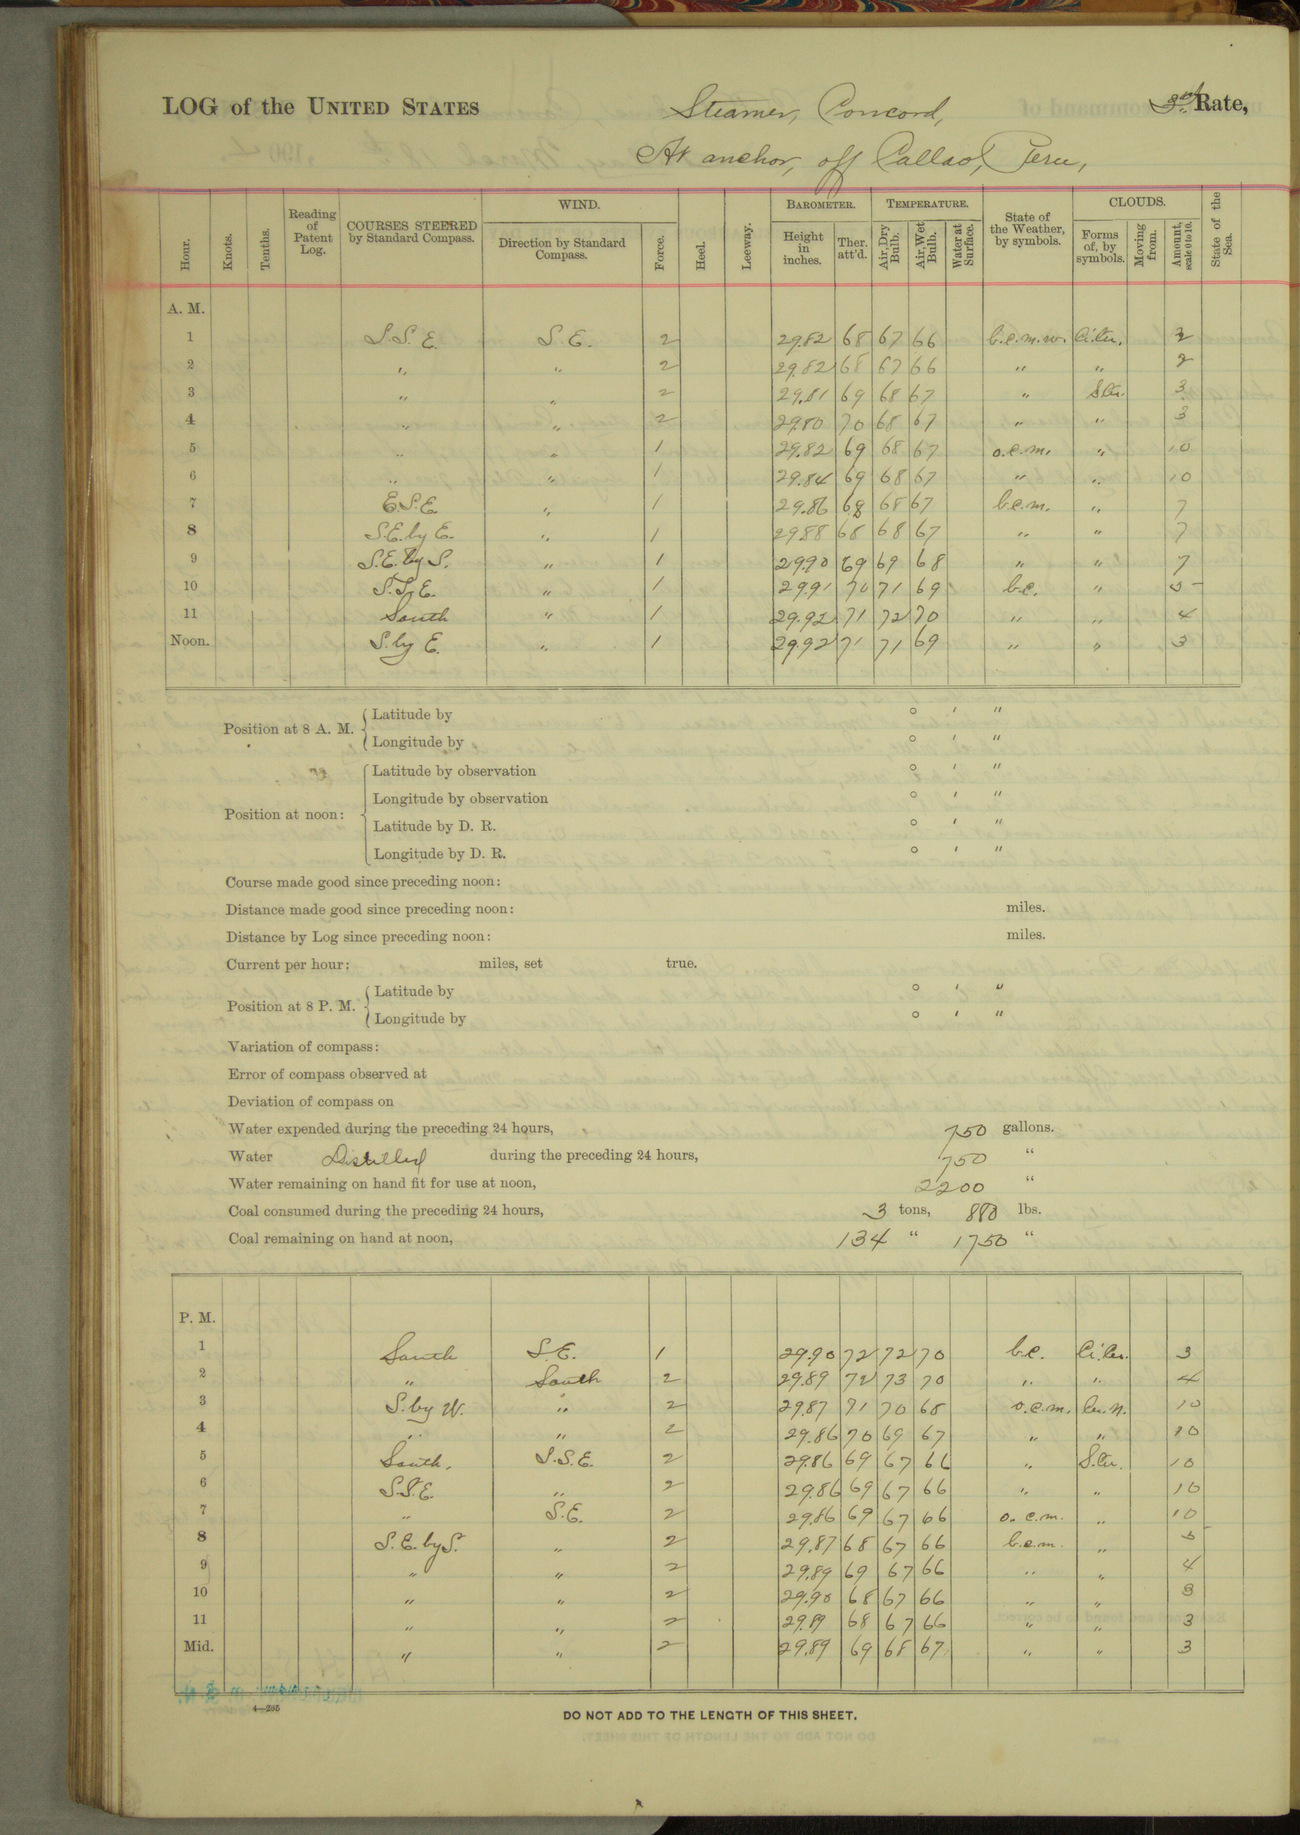 LOG of the UNITED STATES Steamer, Concord, 3rd Rate,
At anchor, off Callao, Peru,
Hour. Knots. Tenths. Reading of Patent Log. COURSES STEERED by Standard Compass. WIND. Direction by Standard Compass. Force. Heel. Leeway. BAROMETER. Height in inches. Ther. att'd. TEMPERATURE. Air, Dry Bulb. Air, Wet Bulb. Water at Surface. State of the Weather, by symbols. CLOUDS. Forms of, by symbols. Moving from. Amount, scale 0 to 10. State of the Sea.
A. M.
1 S.S.E. S.E. 2 29.82 68 67 66 b.c.m.w. Ci.Cu. 2
2 " " 2 29.82 68 67 66 " " 2
3 " " 2 29.81 69 68 67 " S.Cu. 3
4 " " 2 29.80 70 68 67 " " 3
5 " " 1 29.82 69 68 67 o.c.m. " 10
6 " " 1 29.84 69 68 67 " " 10
7 E.S.E. " 1 29.86 68 68 67 b.c.m. " 7
8 S.E. by E. " 1 29.88 68 68 67 " " 7
9 S.E. by S. " 1 29.90 69 69 68 " " 7
10 S.S.E. " 1 29.91 70 71 69 b.c. " 5
11 South " 1 29.92 71 72 70 " " 4
Noon. S. by E. " 1 29.92 71 71 69 " " 3
Position at 8 A. M. Latitude by ° ' "
Longitude by ° ' "
Position at noon: Latitude by observation ° ' "
Longitude by observation ° ' "
Latitude by D. R. ° ' "
Longitude by D. R. ° ' "
Course made good since preceding noon:
Distance made good since preceding noon: miles.
Distance by Log since preceding noon: miles.
Current per hour: miles, set true.
Position at 8 P. M. Latitude by ° ' "
Longitude by ° ' "
Variation of compass:
Error of compass observed at
Deviation of compass on
Water expended during the preceding 24 hours, 750 gallons.
Water Distilled during the preceding 24 hours, 750 "
Water remaining on hand fit for use at noon, 2200 "
Coal consumed during the preceding 24 hours, 3 tons, 880 lbs.
Coal remaining on hand at noon, 134 " 1750 "
P. M.
1 South S.E. 1 29.90 72 72 70 b.c. Ci.Cu. 3
2 " South 2 29.89 72 73 70 " " 4
3 S. by W. " 2 29.87 71 70 68 o.c.m. Cu.N. 10
4 " " 2 29.86 70 69 67 " " 10
5 South. S.S.E. 2 29.86 69 67 66 " S.Cu. 10
6 S.S.E. " 2 29.86 69 67 66 " " 10
7 " S.E. 2 29.86 69 67 66 o.c.m. " 10
8 S.E. by S. " 2 29.87 68 67 66 b.c.m. " 5
9 " " 2 29.89 69 67 66 " " 4
10 " " 2 29.90 68 67 66 " " 3
11 " " 2 29.89 68 67 66 " " 3
Mid. " " 2 29.89 69 68 67 " " 3
4—265
DO NOT ADD TO THE LENGTH OF THIS SHEET.